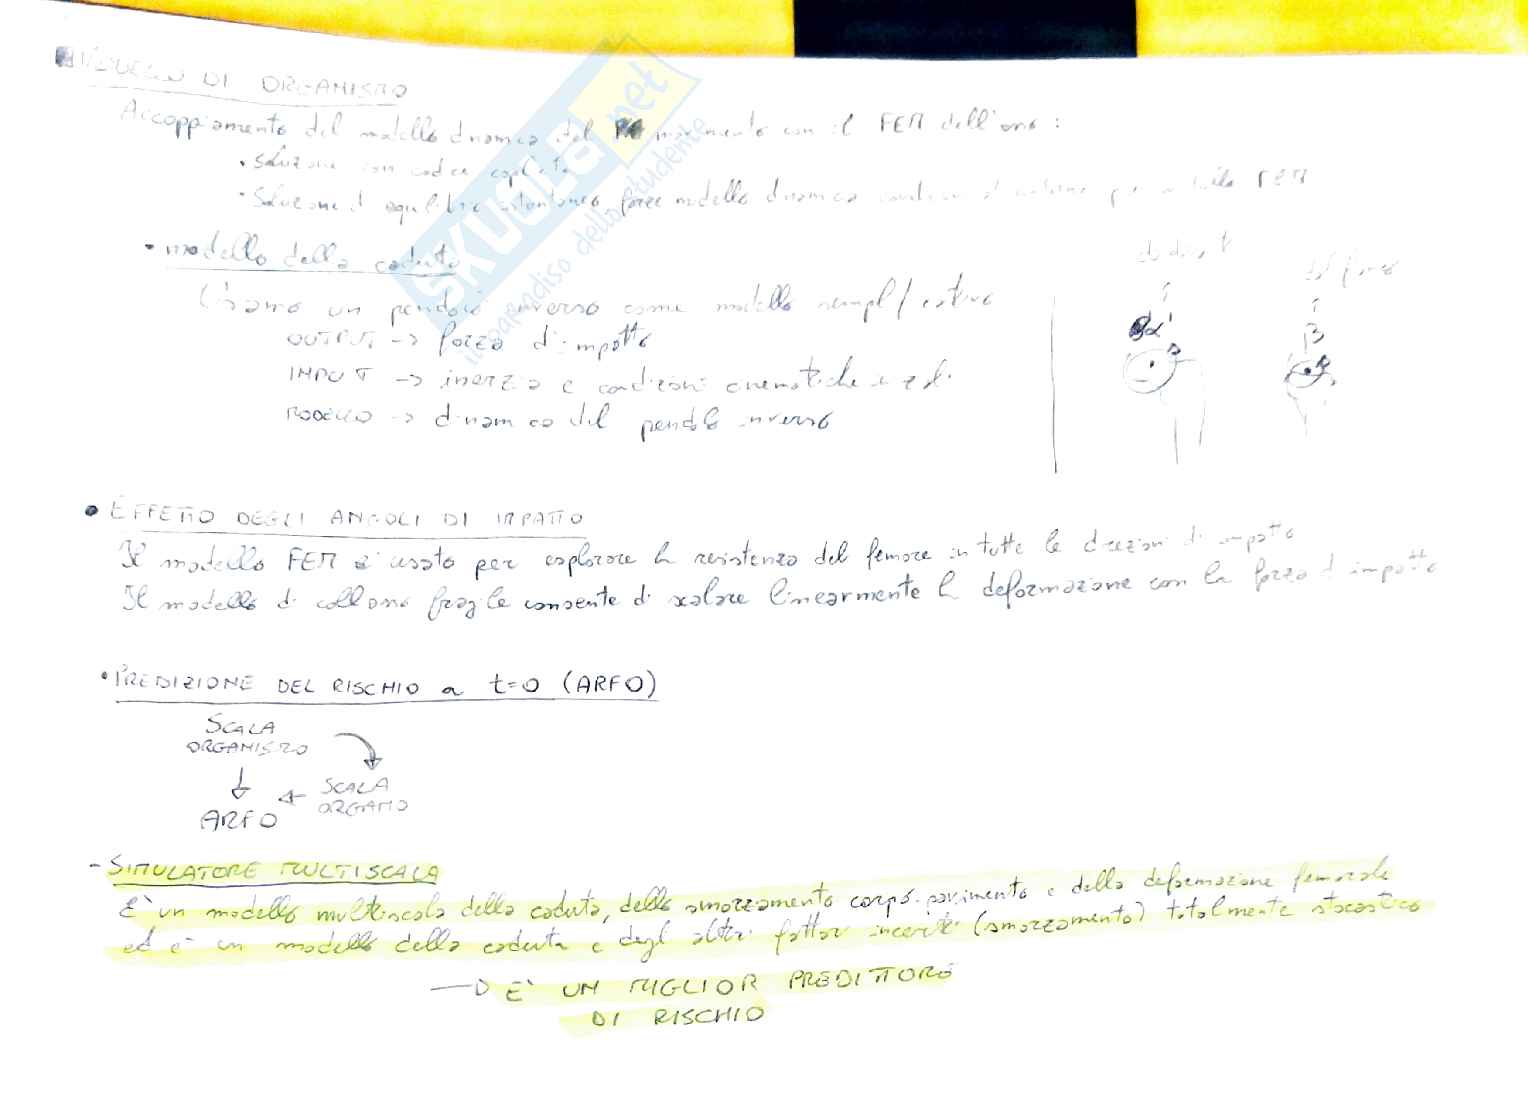 DI ORGANISMO
Accoppiamento del modello dinamico del movimento con il FEM dell'osso:
• Soluzione con codice esplicito
• Soluzione di equilibrio istantaneo forze modello dinamico FEM
• modello della caduta
Usiamo un pendolo inverso come modello semplificativo
OUTPUT -> forza d'impatto
INPUT -> inerzia e condizioni cinematiche iniziali
MODELLO -> dinamica del pendolo inverso
α
β
• EFFETTO DEGLI ANGOLI DI IMPATTO
Il modello FEM è usato per esplorare la resistenza del femore in tutte le direzioni di impatto
Il modello di collasso fragile consente di scalare linearmente la deformazione con la forza d'impatto
• PREDIZIONE DEL RISCHIO a t=0 (ARFO)
SCALA
ORGANISMO
SCALA
ORGANO
ARFO
- SIMULATORE MULTISCALA
È un modello multiscala della caduta, dello smorzamento corpo-pavimento e della deformazione femorale
ed è un modello della caduta e degli altri fattori incerti (smorzamento) totalmente stocastico
È UN MIGLIOR PREDITTORE
DI RISCHIO
SKUOLA.net
il paradiso dello studente